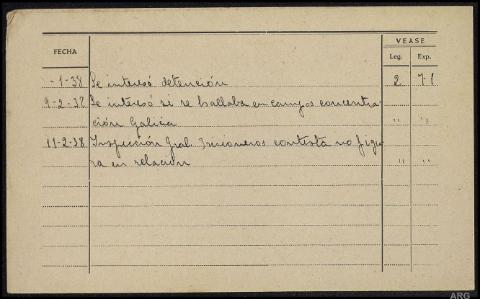 VEASE
FECHA Leg. Exp.
-1-38 Se interesó detención 2 71
9-2-38 Se interesó si se hallaba en campos concentra-
ción Galicia " "
11-2-38 Inspección Gral. Prisioneros contesta no figu-
ra en relación " "
ARG